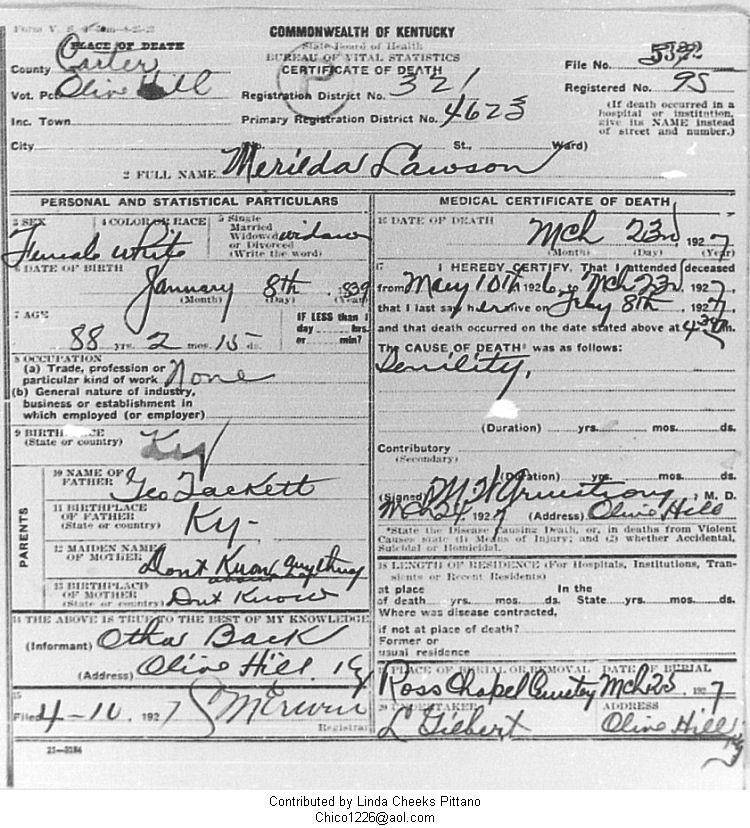 Form V. S.
COMMONWEALTH OF KENTUCKY
State Board of Health
BUREAU OF VITAL STATISTICS
CERTIFICATE OF DEATH
PLACE OF DEATH
County Carter
Vot. Pct Olive Hill
Inc. Town
City No. St., Ward)
Registration District No. 321
Primary Registration District No. 4623
File No.
Registered No. 95
(If death occurred in a
hospital or institution,
give its NAME instead
of street and number.)
2 FULL NAME Merilda Lawson
PERSONAL AND STATISTICAL PARTICULARS
3 SEX Female
4 COLOR OR RACE White
5 Single
Married
Widowed widow
or Divorced
(Write the word)
6 DATE OF BIRTH
January 8th, 1839
(Month) (Day) (Year)
7 AGE
88 yrs. 2 mos. 15 ds.
IF LESS than 1
day hrs.
or min?
8 OCCUPATION
(a) Trade, profession or
particular kind of work None
(b) General nature of industry,
business or establishment in
which employed (or employer)
9 BIRTHPLACE
(State or country) Ky
PARENTS
10 NAME OF
FATHER Geo Tackett
11 BIRTHPLACE
OF FATHER
(State or country) Ky-
12 MAIDEN NAME
OF MOTHER Dont Know anything
13 BIRTHPLACE
OF MOTHER
(State or country) Dont Know
14 THE ABOVE IS TRUE TO THE BEST OF MY KNOWLEDGE
(Informant) Otha Back
(Address) Olive Hill. Ky
15
Filed 4-10. 1927
Registrar
23-3184
MEDICAL CERTIFICATE OF DEATH
16 DATE OF DEATH
Mch 23rd 1927
(Month) (Day) (Year)
17 I HEREBY CERTIFY, That I attended deceased
from May 10th 1926, to Mch 23rd. 1927
that I last saw her alive on Feby 8th. 1927
and that death occurred on the date stated above at 4 30 m.
The CAUSE OF DEATH* was as follows:
Senility,
(Duration) yrs. mos. ds.
Contributory
(Secondary)
(Duration) yrs. mos. ds.
(Signed) M W Armstrong, M. D.
Mch 24, 1927 (Address) Olive Hill
*State the Disease Causing Death, or, in deaths from Violent
Causes state (1) Means of Injury; and (2) whether Accidental,
Suicidal or Homicidal.
18 LENGTH OF RESIDENCE (For Hospitals, Institutions, Tran-
sients or Recent Residents)
at place In the
of death yrs. mos. ds. State yrs. mos. ds.
Where was disease contracted,
if not at place of death?
Former or
usual residence
PLACE OF BURIAL OR REMOVAL DATE OF BURIAL
Ross Chapel Cemetery Mch 25. 1927
20 UNDERTAKER ADDRESS
L Gilbert Olive Hill Ky
Contributed by Linda Cheeks Pittano
Chico1226@aol.com